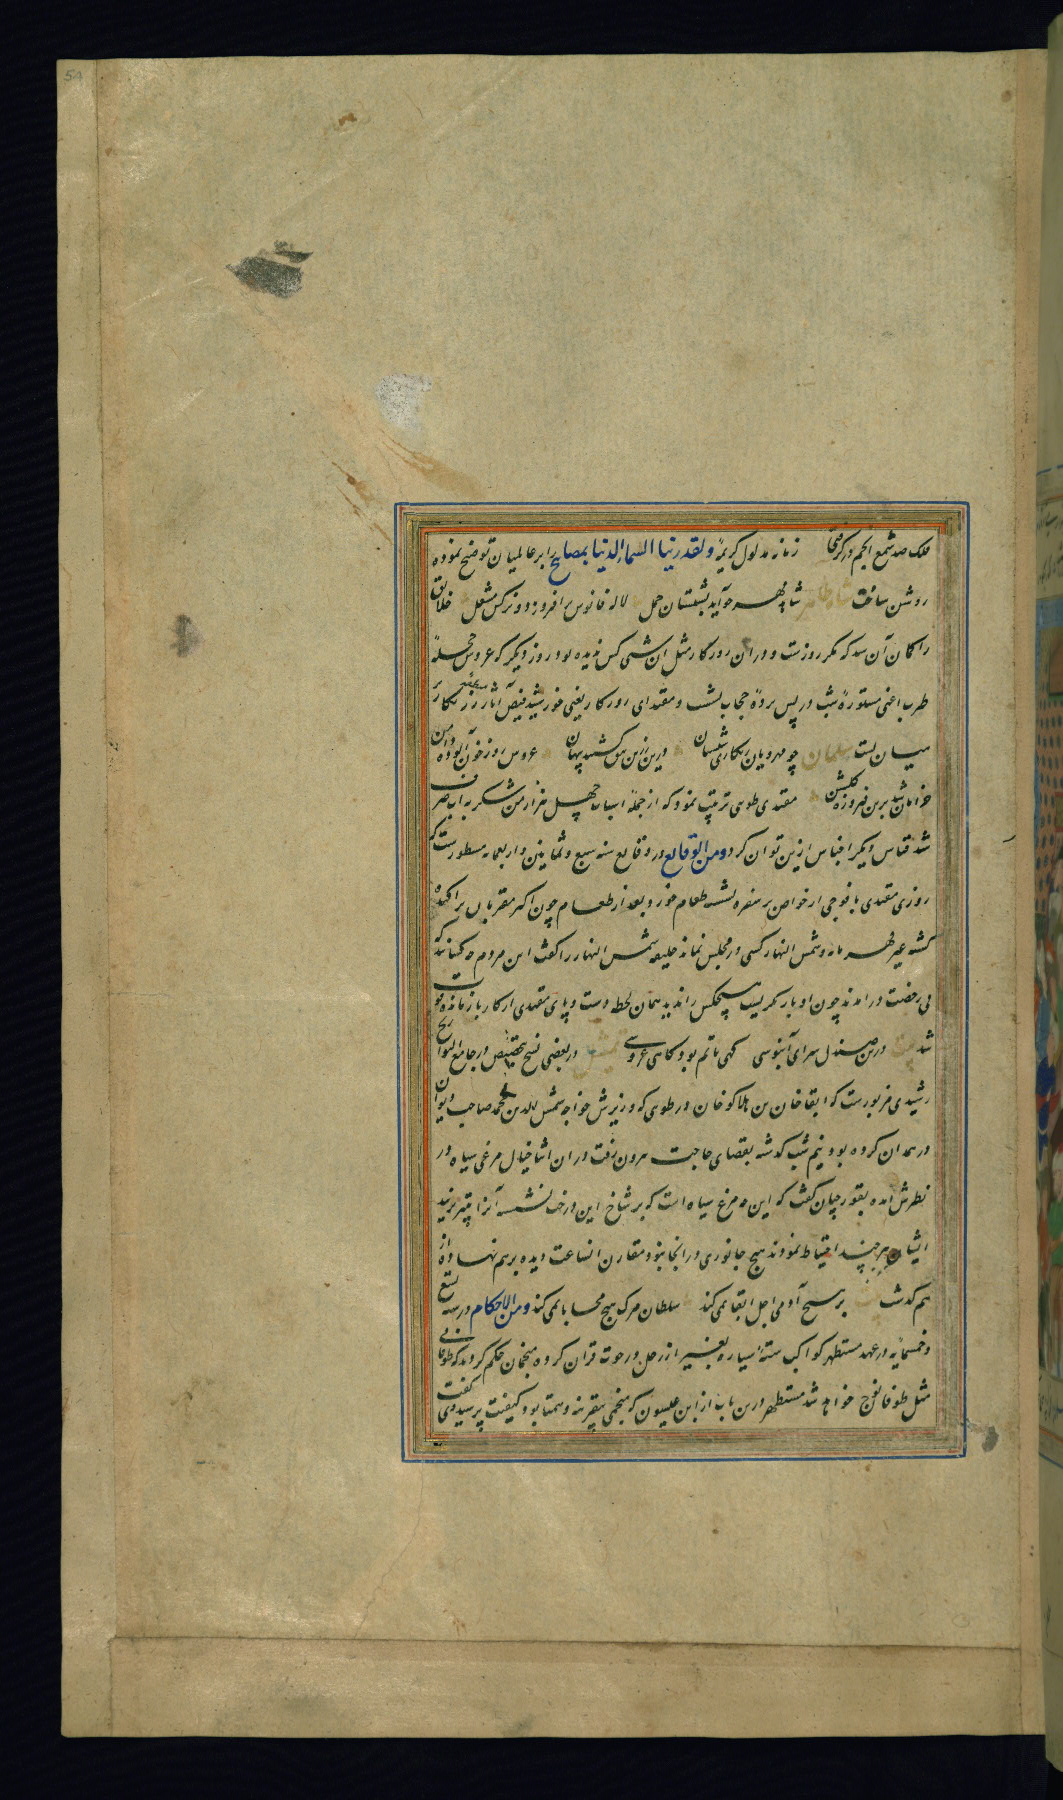 فلک صد شمع انجم در کرفت زمانه مدلول کریمهٔ ولقد زینا السماء الدنیا بمصابیح را بر عالمیان توضیح نموده
روشن ساخت شاید بهر حوآید بشبستان حمل لاله فانوس برافروزد و نرکس مشعل خلایق
را کمان آن شد که مکر روزست و در آن روزکار مثل آن شبی کس ندیده بود روز دیکر که عروس حجلهٔ
طرب اعنی مستورهٔ شب در پس پردهٔ حجاب نشست و مقتدای روزکار یعنی خورشید فیض آثار زرنکار بر
میان بست سلمان چو مهرویان انکاری شبستان درین زرین تتق کشتند پنهان عروس روز خون آلوده دامن
خرامان شد برین فیروزه کلشن مقتدی طوی ترتیب نمود که از جمله اسباب چهل هزار من شکر بدانجا صرف
شد قیاس دیکر اجناس ازین توان کرد ومن الوقایع در وقایع سنه سبع وثمانین واربعمایه مسطورست که
روزی مقتدی با فوجی از خواص بر سفره نشسته طعام خورد بعد از طعام چون اکثر مقربان پراکنده
کشته غیر قهرمانه و شمس النهار کسی در مجلس نماند خلیفه شمس النهار را کفت این مردم چه کسانند که
بی رخصت درامدند چون او باز نکریست هیچکس را ندید همان لحظه دست و پای مقتدی از کار باز مانده فوت
شد درین صندل سرای آبنوسی کهی ماتم بود کاهی عروسی در بعضی نسخ بتخصیص در جامع التواریخ
رشیدی مزبورست که ابقاخان بن هلاکوخان در طوی که وزیرش خواجه شمس الدین محمد صاحب دیوان
در همدان کرده بود و نیم شب کذشته بقضای حاجت بیرون رفت در آن اثنا خیال مرغی سیاه در
نظرش آمده بقورچیان کفت که این چه مرغ سیاه است که بر شاخ این درخت نشسته آنرا بتیر بزنید
ایشان هر چند احتیاط نمودند هیچ جانوری در انجا نبود مقارن انساعت دیده برهم نهاد و از
هم کذشت بر هیچ آدمی اجل ابقا نمی کند سلطان مرک هیچ محابا نمی کند ومن الاحکام در سنه تسع
و خمسمایه در عهد مستظهر کواکب ستهٔ سیاره بغیر از زحل در حوت قران کرده منجمان حکم کردند که طوفانی
مثل طوفان نوح خواهد شد مستظهر درین باب از ابن عیسون که منجمی بیقرینه و همتا بود کیفیت پرسید وی کفت